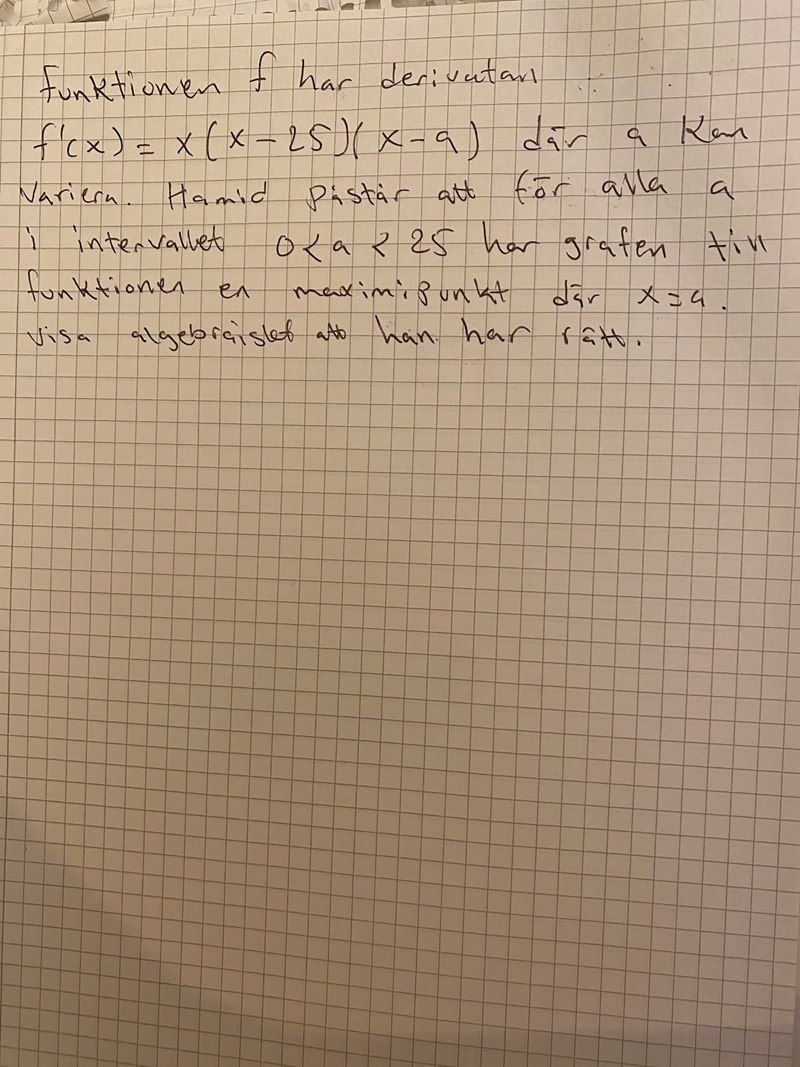 funktionen f har derivatan
f'(x) = x(x-25)(x-a) där a kan
variera. Hamid påstår att för alla a
i intervallet 0<a<25 har grafen till
funktionen en maximipunkt där x=a.
visa algebraiskt att han har rätt.